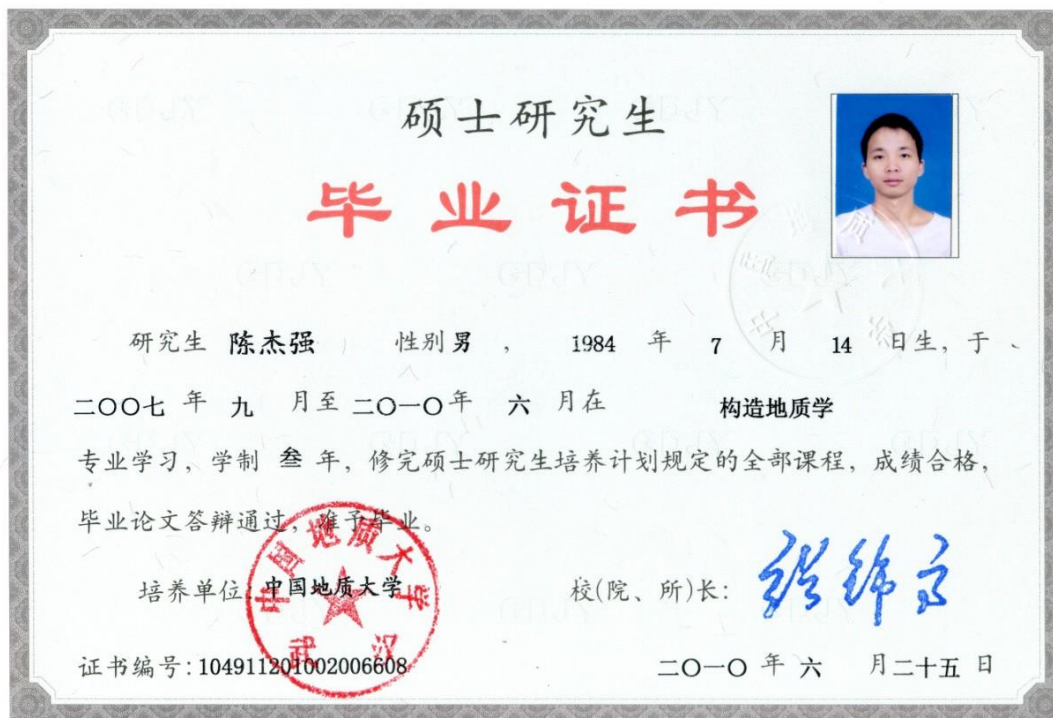 硕士研究生
毕业证书
研究生 陈杰强 性别 男 ， 1984 年 7 月 14 日生，于
二〇〇七 年 九 月至 二〇一〇年 六 月在 构造地质学
专业学习，学制 叁 年，修完硕士研究生培养计划规定的全部课程，成绩合格，
毕业论文答辩通过，准予毕业。
培养单位：中国地质大学
校(院、所)长：
中国地质大学
武汉
证书编号：104911201002006608
二〇一〇 年 六 月二十五 日